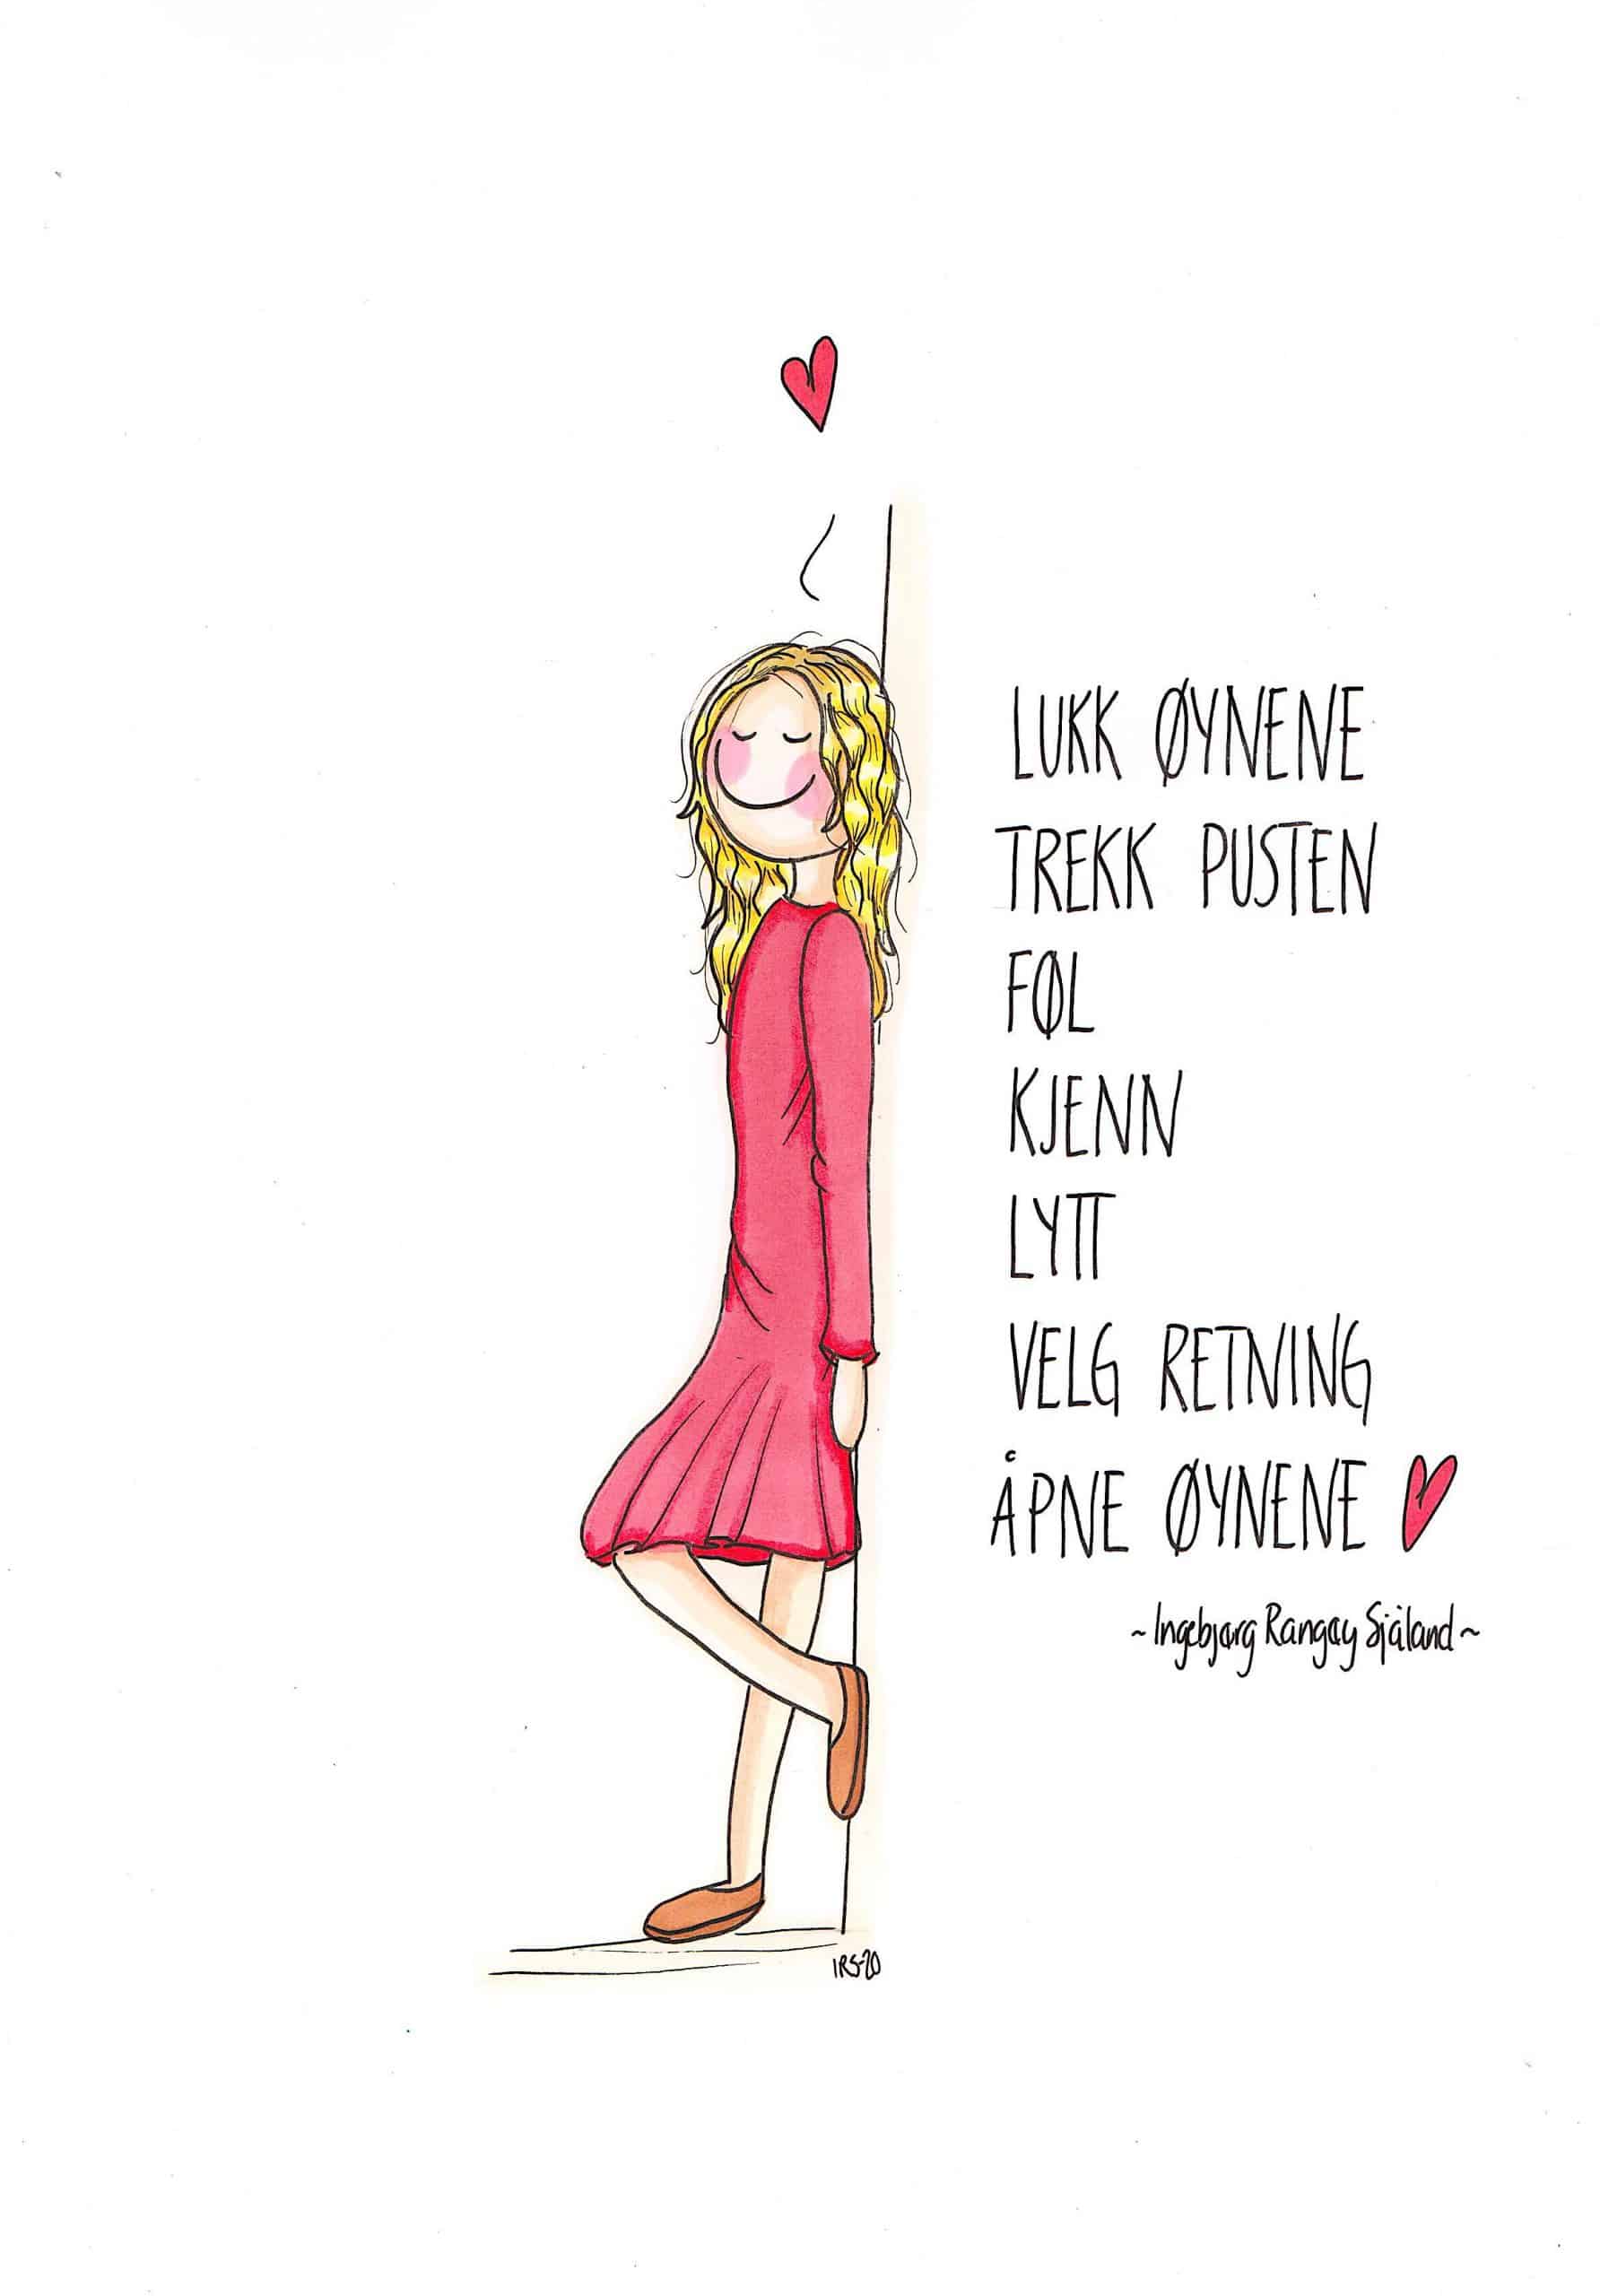 LUKK ØYNENE
TREKK PUSTEN
FØL
KJENN
LYTT
VELG RETNING
ÅPNE ØYNENE
~Ingebjørg Rangøy Sjåland~
IRS-20